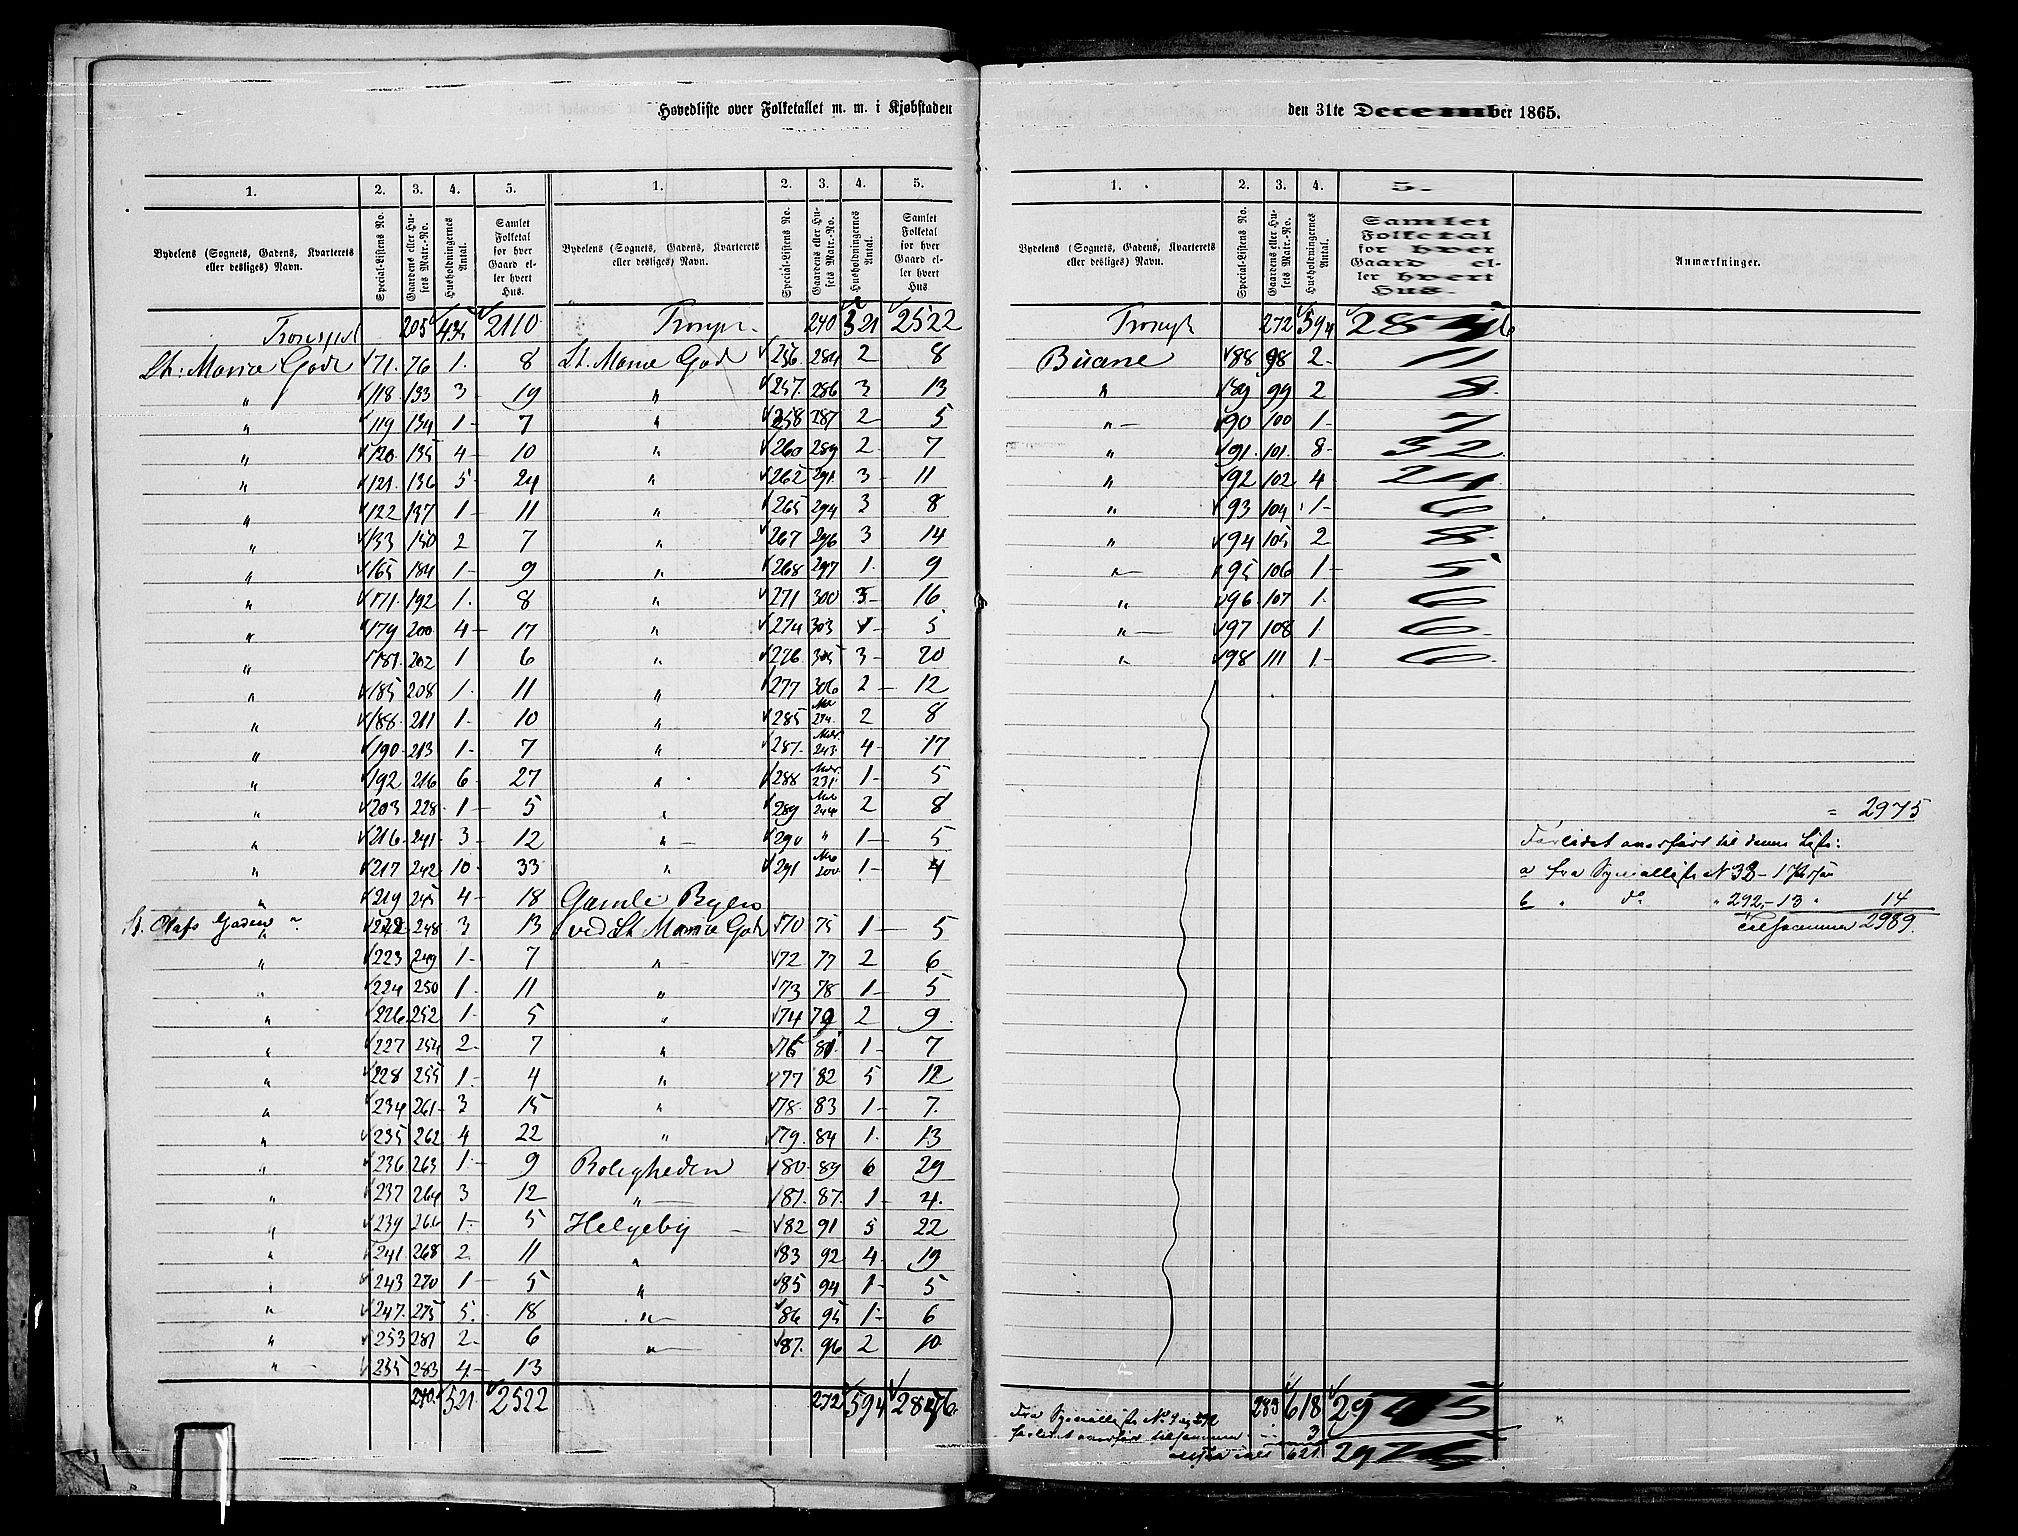 Hovedliste over Folketallet m. m. i Kjøbstaden
1. 2. 3. 4. 5. 1. 2. 3. 4. 5.
Bydelens (Sognets, Gadens, Kvarterets eller desliges) Navn. Special-Listens No. Gaardens eller Husets Matr.-No. Husholdningernes Antal. Samlet Folketal for hver Gaard eller hvert Hus. Bydelens (Sognets, Gadens, Kvarterets eller desliges) Navn. Special-Listens No. Gaardens eller Husets Matr.-No. Husholdningernes Antal. Samlet Folketal for hver Gaard eller hvert Hus
Transp. 205 434 2110 Transp. 240 521 2522
St: Marie Gade 71. 76 1. 8 St. Marie Gad 256. 284 2 8
" 118 133 3 19 " 257. 286 3 13
" 119 134 1 7 " 258 287 2 5
" 120 135 4 10 " 260 289 2 7
" 121 136 5 24 " 262 291 3 11
" 122 137 1 11 " 265 294 3 8
" 133 150 2 7 " 267 296 3 14
" 165 184 1 9 " 268 297 1. 9
" 171 192 1. 8 " 271 300 5 16
" 179 200 4 17 " 274 303 1 5
" 181. 202 1 6 " 276 305 3 20
" 185 208 1. 11 " 277 306 2 12
" 188 211 1 10 " 285 2 8
" 190 213 1 7 " 287. 243. 4 17
" 192 216 6 27 " 288 231 1 5
" 203 228 1 5 " 289 244 2 8
" 216 241 3 12 " 290 " 1 5
" 217 242 10 33 " 291 200 1 4
" 219 245 4 18 Gamle Byen
St. Olafs Gaden 222 248 3 13 ved St. Marie Gade 70 75 1 5
" 223 249 1 7 " 72 77 2 6
" 224 250 1 11 " 73 78 1 5
" 226 252 1 5 " 74 79 2 9
" 227 254 2 7 " 76 81 1 7
" 228 255 1. 4 " 77 82 5 12
" 234 261 3 15 " 78. 83 1 7.
" 235 262 4 22 " 79. 84 1. 13
" 236 263 1. 9 Roligheden 80 89 6 29
" 237 264 3 12 " 81. 87. 1 4.
" 239 266 1 5 Helgeby 82 91 5 22
" 241 268 2 11 " 83 92 4 19
" 243 270 1 5 " 85 94 1 5
" 247. 275 5. 18 " 86 95 1 6
" 253 281 2 6 " 87. 96 2 10
" 255 283 4 13
240. 521 2522 272 594 2846
den 31te December 1865.
1. 2. 3. 4. 5.
Bydelens (Sognets, Gadens, Kvarterets eller desliges) Navn. Special-Listens No. Gaardens eller Husets Matr.-No. Husholdningernes Antal. Samlet Folketal for hver Gaard eller hvert Hus. Anmærkninger.
Transp. 272 594 2846
Buane 88 98 2 11
" 89 99 2 8
" 90 100 1 7
" 91. 101. 8 32
" 92 102 4 24
" 93 104 1 6
" 94 105 2 8
" 95 106 1 5
" 96 107 1. 6
" 97 108 1. 6
" 98 111 1 6
= 2975
anført til denne Liste:
a fra Specialliste N 38 - 1
b " do " 292, - 13 " 14
Tilsammen 2989.
283 618 2965
Fra Specialliste No
anført tilsammen 3
621